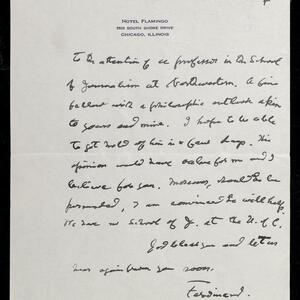 HOTEL FLAMINGO
5500 SOUTH SHORE DRIVE
CHICAGO, ILLINOIS
To the attention of a professor in the School
of Journalism at Northwestern. A fine
fellow with a philosophic outlook akin
to yours and mine. I hope to be able
to get hold of him in a few days. His
opinion would have value for me and I
believe for you. Moreover, should he be
persuaded, I am convinced he will help.
We have no School of J. at the U. of C.
God bless you and let us
hear again from you soon,
Ferdinand.